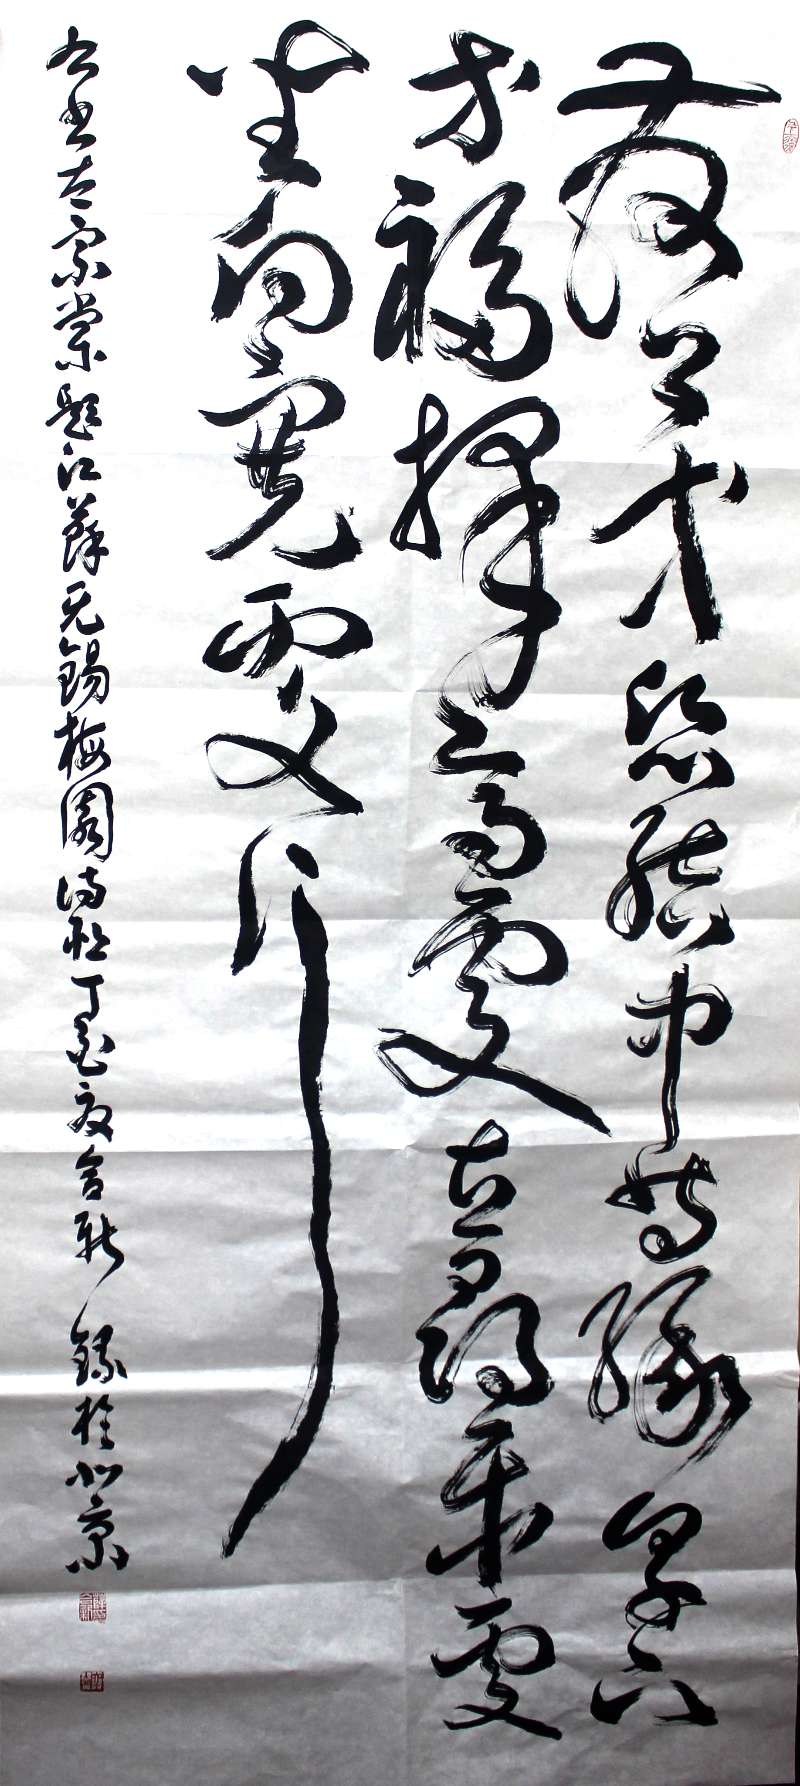 發上等願結中等緣享下
等福擇高處立平處
坐向寬處行
左宗棠題江蘇无錫梅園詩聯丁酉錄於北京